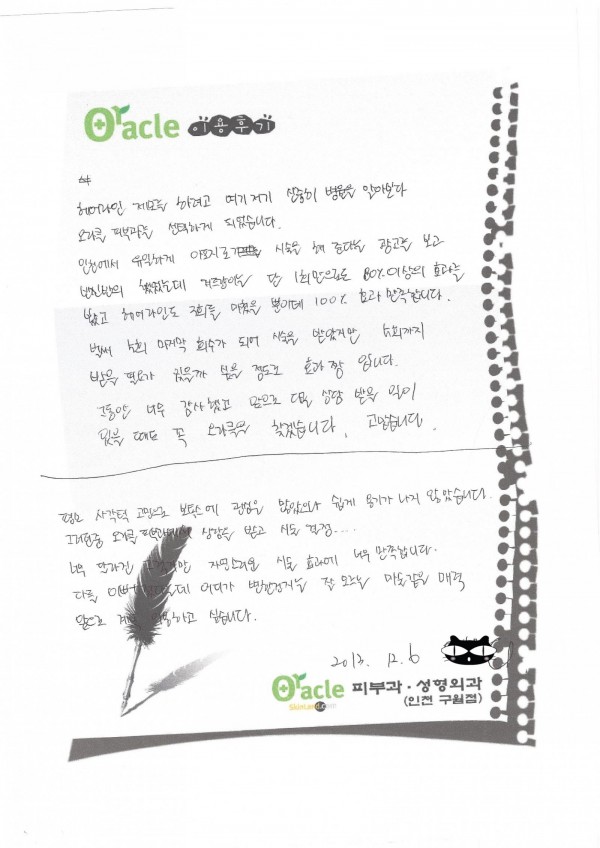 Oracle 이용후기
헤어라인 제모를 하려고 여기저기 신중히 병원을 알아보다
오라클 피부과를 선택하게 되었습니다.
인천에서 유일하게 시술을 해 준다는 광고를 보고
반신반의 했었는데 겨드랑이는 단 1회만으로 80% 이상의 효과를
봤고 헤어라인도 2회를 마쳤을 뿐인데 100% 효과 만족합니다.
벌써 5회 마지막 회수가 되어 시술을 받았지만 5회까지
받을 필요가 있을까 싶을 정도로 효과 짱 입니다.
그동안 너무 감사했고 앞으로 다른 상담 받을 일이
있을 때도 꼭 오라클을 찾겠습니다. 고맙습니다.
평소 사각턱 고민으로 보톡스에 관심은 많았으나 쉽게 용기가 나지 않았습니다.
그러던중 오라클 상담을 받고 시술 결정....
너무 자연스러운 시술 효과에 너무 만족합니다.
다들 어디가 변한건지를 잘 모르는 마술같은 매력
앞으로 하고 싶습니다.
2013. 12. 6
Oracle 피부과·성형외과
SkinLand.com (인천 구월점)